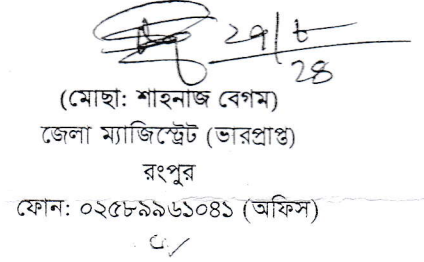 ২৭/৮
২৪
(মোছা: শাহনাজ বেগম)
জেলা ম্যাজিস্ট্রেট (ভারপ্রাপ্ত)
রংপুর
ফোন: ০২৫৮৯৯৬১০৪১ (অফিস)